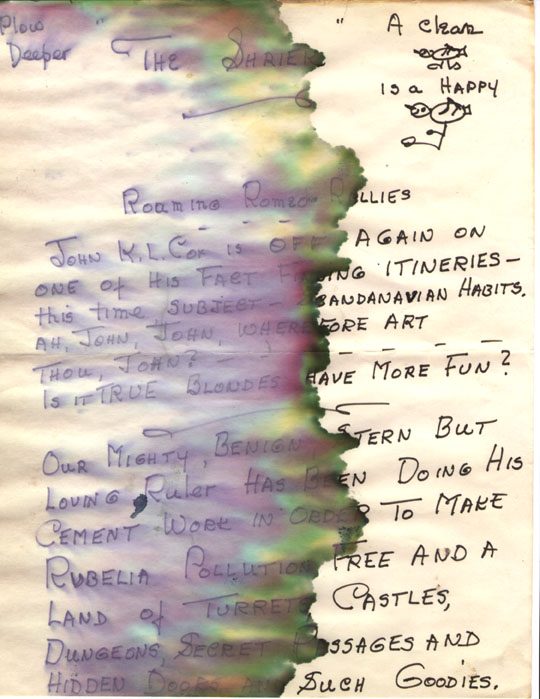 Plow
Deeper
" THE SHRIEK "
A Clean
is a HAPPY
Roaming Romeo Rallies
JOHN K.L. COX is OFF AGAIN ON
ONE of His FACT FINDING ITINERIES-
this time SUBJECT- SCANDANAVIAN HABITS.
AH, JOHN, JOHN, WHEREFORE ART
THOU, JOHN? - - - - -
Is it TRUE BLONDES HAVE MORE FUN?
OUR MIGHTY, BENIGN, STERN BUT
LOVING RULER HAS BEEN DOING HIS
CEMENT WORK IN ORDER TO MAKE
RUBELIA POLLUTION FREE AND A
LAND of TURRETS, CASTLES,
DUNGEONS, SECRET PASSAGES AND
HIDDEN DOORS AND SUCH GOODIES.